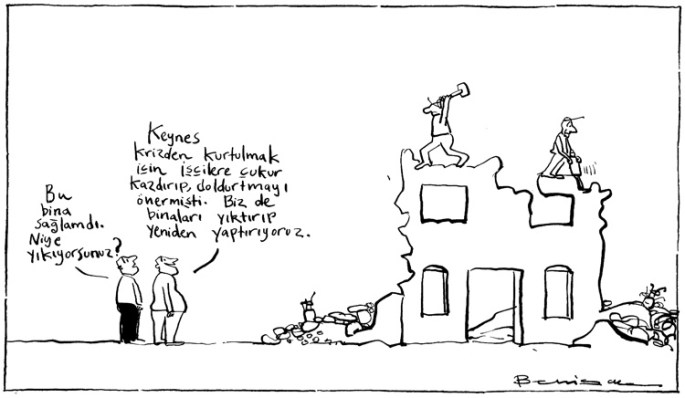 Bu
bina
sağlamdı.
Niye
yıkıyorsunuz?
Keynes
krizden kurtulmak
için işçilere çukur
kazdırıp, doldurtmayı
önermişti. Biz de
binaları yıktırıp
yeniden yaptırıyoruz.